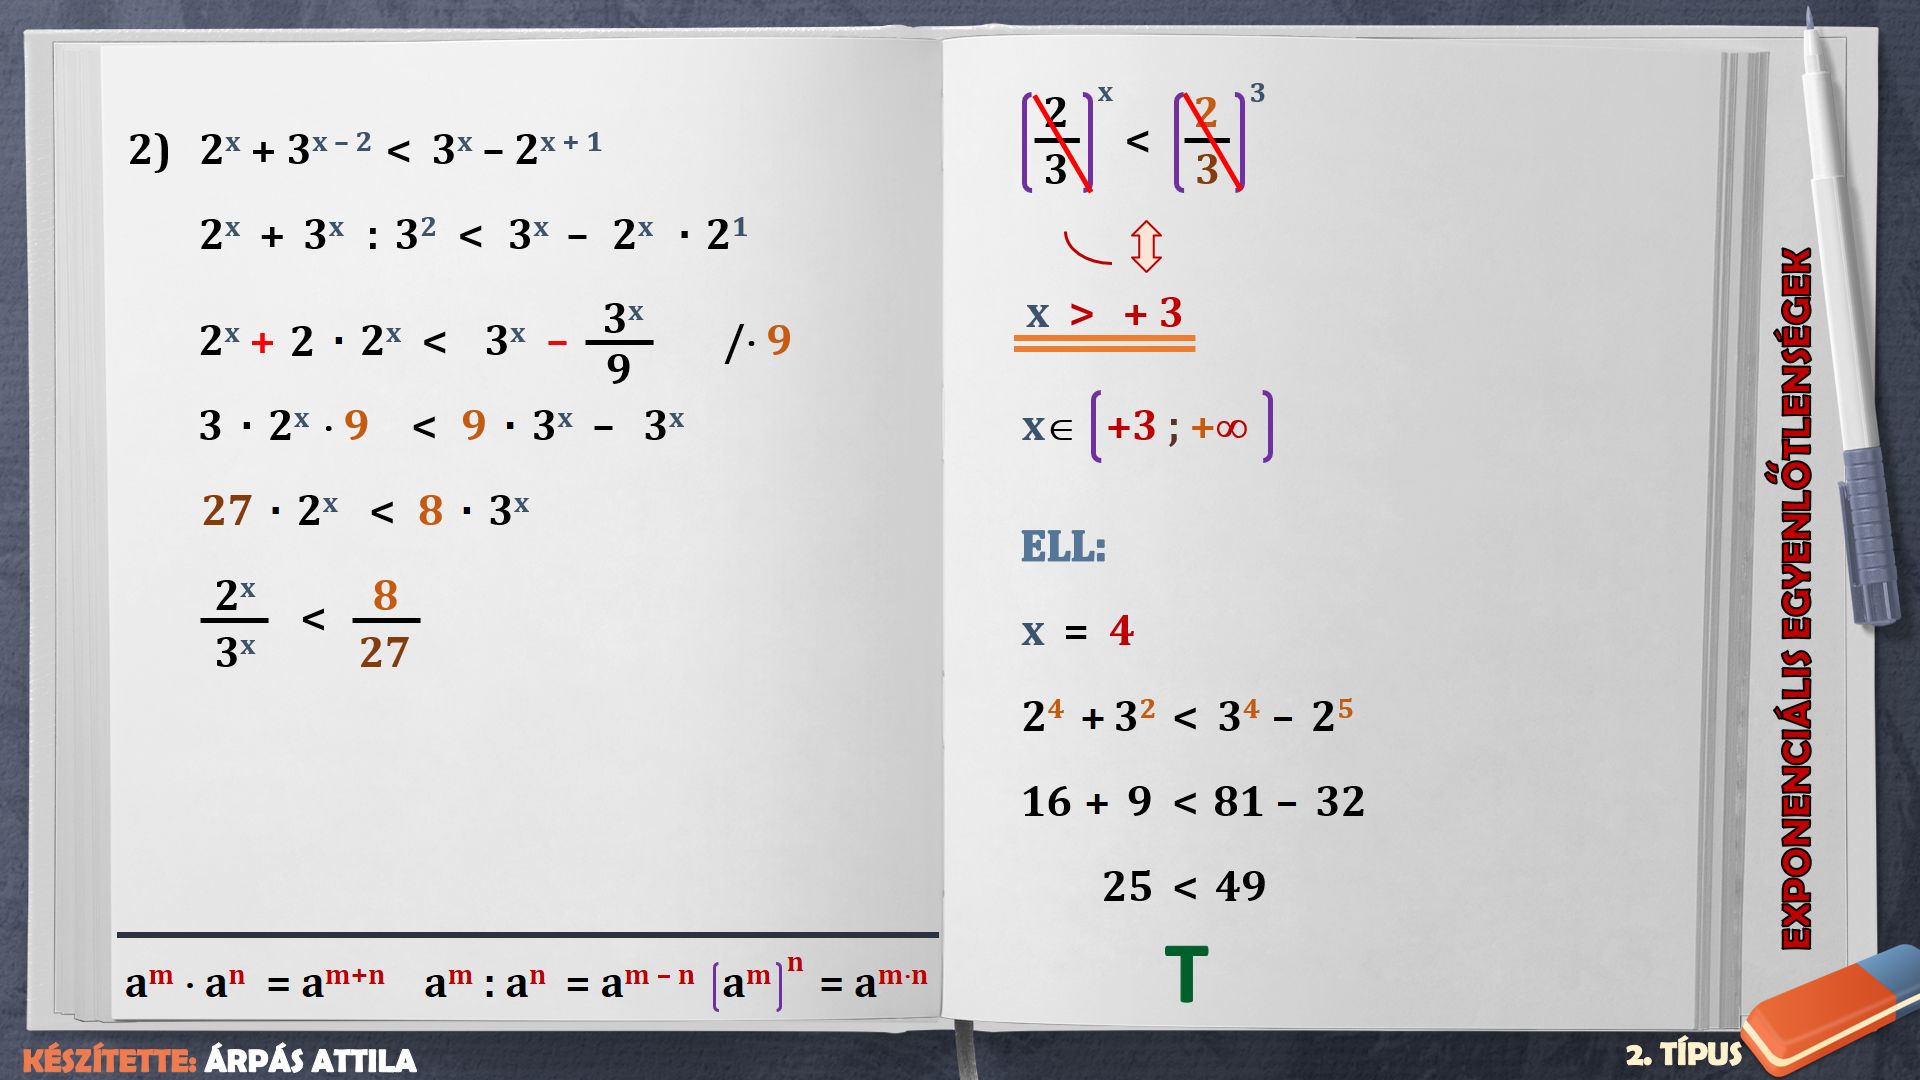 2) 2ˣ + 3ˣ ⁻ ² < 3ˣ – 2ˣ ⁺ ¹
2ˣ + 3ˣ : 3² < 3ˣ – 2ˣ · 2¹
2ˣ + 2 · 2ˣ < 3ˣ – 3ˣ/9 /· 9
3 · 2ˣ · 9 < 9 · 3ˣ – 3ˣ
27 · 2ˣ < 8 · 3ˣ
2ˣ/3ˣ < 8/27
aᵐ · aⁿ = aᵐ⁺ⁿ aᵐ : aⁿ = aᵐ ⁻ ⁿ (aᵐ)ⁿ = aᵐ·ⁿ
(2/3)ˣ < (2/3)³
x > + 3
x∈ (+3 ; +∞)
ELL:
x = 4
2⁴ + 3² < 3⁴ – 2⁵
16 + 9 < 81 – 32
25 < 49
T
EXPONENCIÁLIS EGYENLŐTLENSÉGEK
KÉSZÍTETTE: ÁRPÁS ATTILA
2. TÍPUS